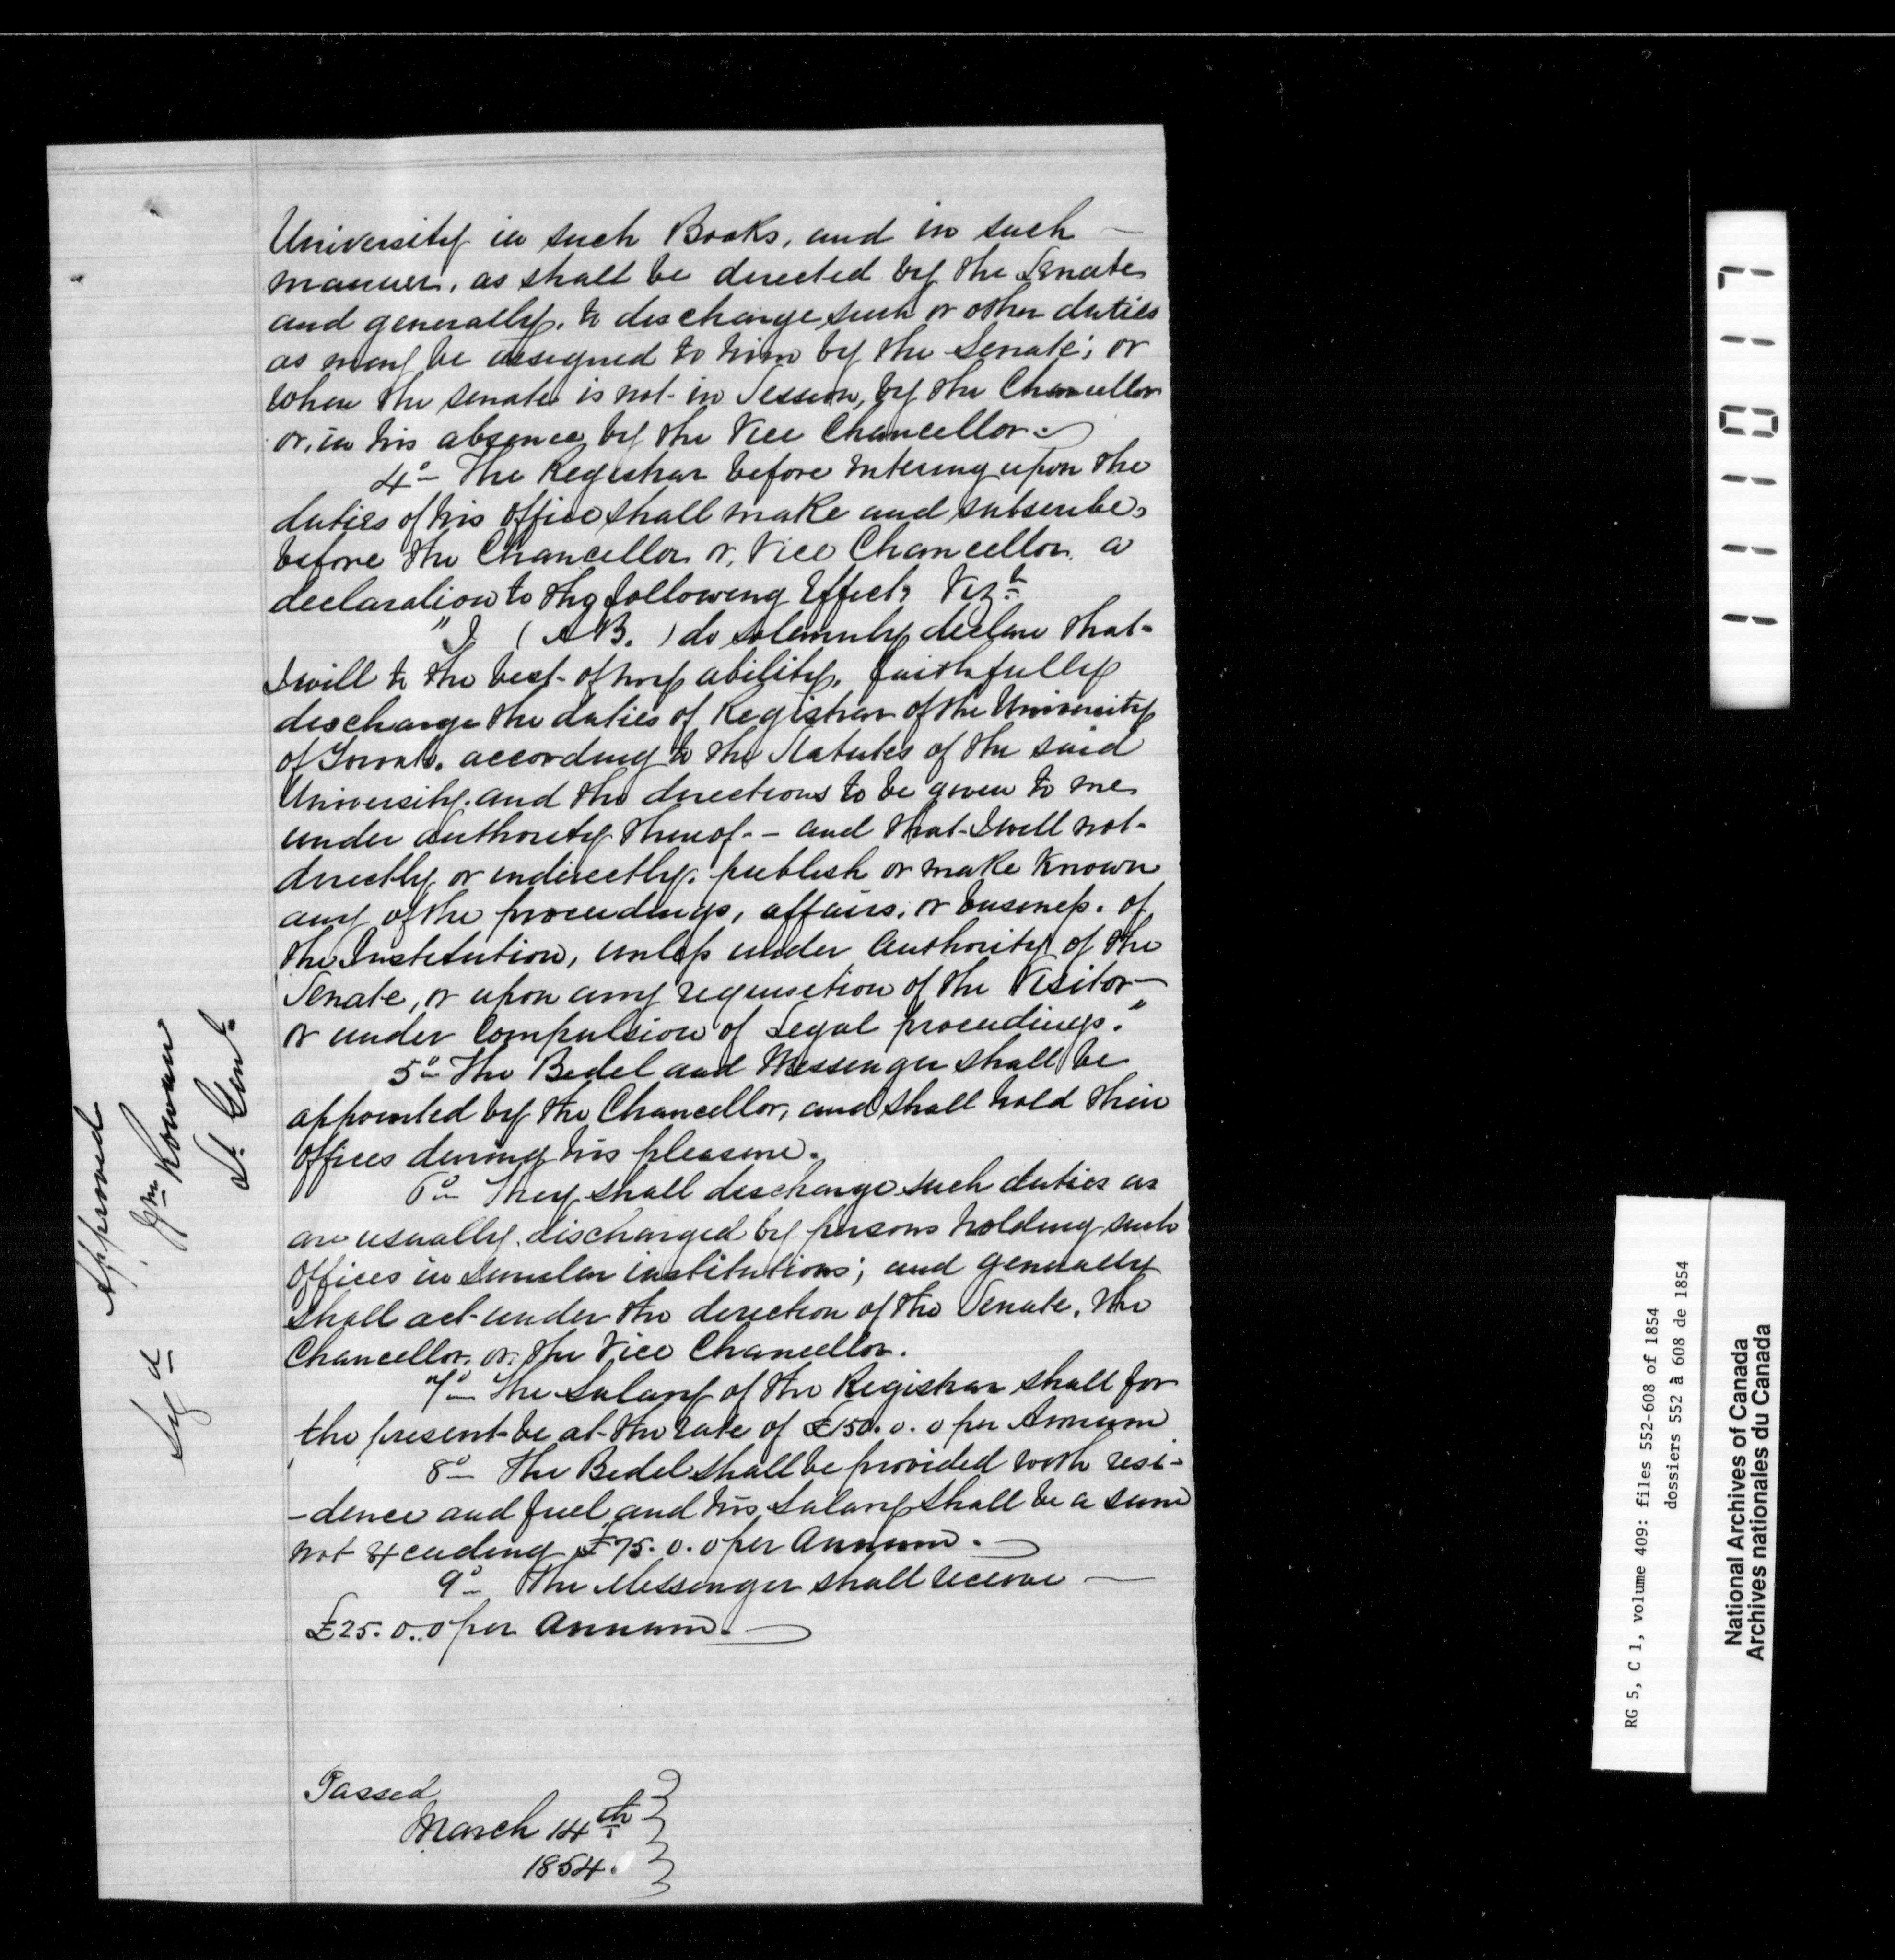 University in such Books, and in such —
manner, as shall be directed by the Senate
and generally, to discharge such or other duties
as may be assigned to him by the Senate; or
when the Senate is not in Session, by the Chancellor
or, in his absence, by the Vice Chancellor.
4º The Registrar before entering upon the
duties of his office shall make and subscribe,
before the Chancellor or, Vice Chancellor, a
declaration to the following Effect, Vizt
"I (A B.) do solemnly declare that
I will to the best of my ability, faithfully
discharge the duties of Registrar of the University
of Toronto, according to the Statutes of the said
University, and the directions to be given to me
under authority thereof — and that I will not
directly or indirectly, publish or make known
any of the proceedings, affairs, or business, of
the Institution, unless under authority of the
Senate, or upon any requisition of the Visitor —
or under compulsion of Legal proceedings."
5º The Bedel and Messenger shall be
appointed by the Chancellor, and shall hold their
offices during his pleasure.
6º They shall discharge such duties as
are usually discharged by persons holding such
offices in similar institutions; and generally
shall act under the direction of the Senate, the
Chancellor, or the Vice Chancellor.
7º The Salary of the Registrar shall for
the present be at the rate of £150. 0. 0 per Annum
8º The Bedel shall be provided with resi-
-dence and fuel, and his Salary shall be a sum
not Exceeding £75. 0. 0 per Annum. —
9º The Messenger shall receive —
£25. 0. 0 per Annum. —
Passed
March 14th
1854.
Approved
Sigd Wm Rowan
Lt. Genl.
111017
RG 5, C 1, volume 409: files 552-608 of 1854
dossiers 552 à 608 de 1854
National Archives of Canada
Archives nationales du Canada